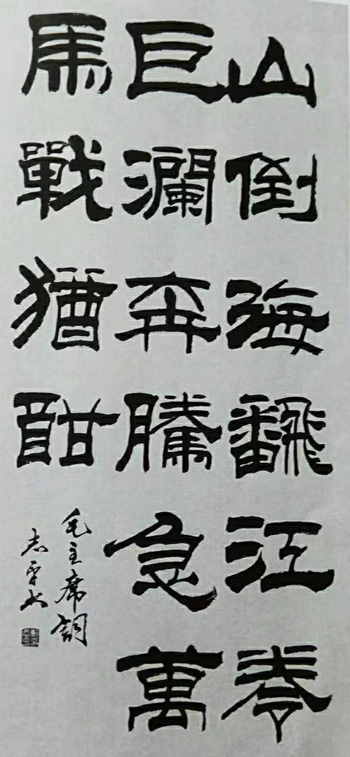 山倒海飜江卷
巨瀾奔騰急萬
馬戰猶酣
毛主席詞
志平书